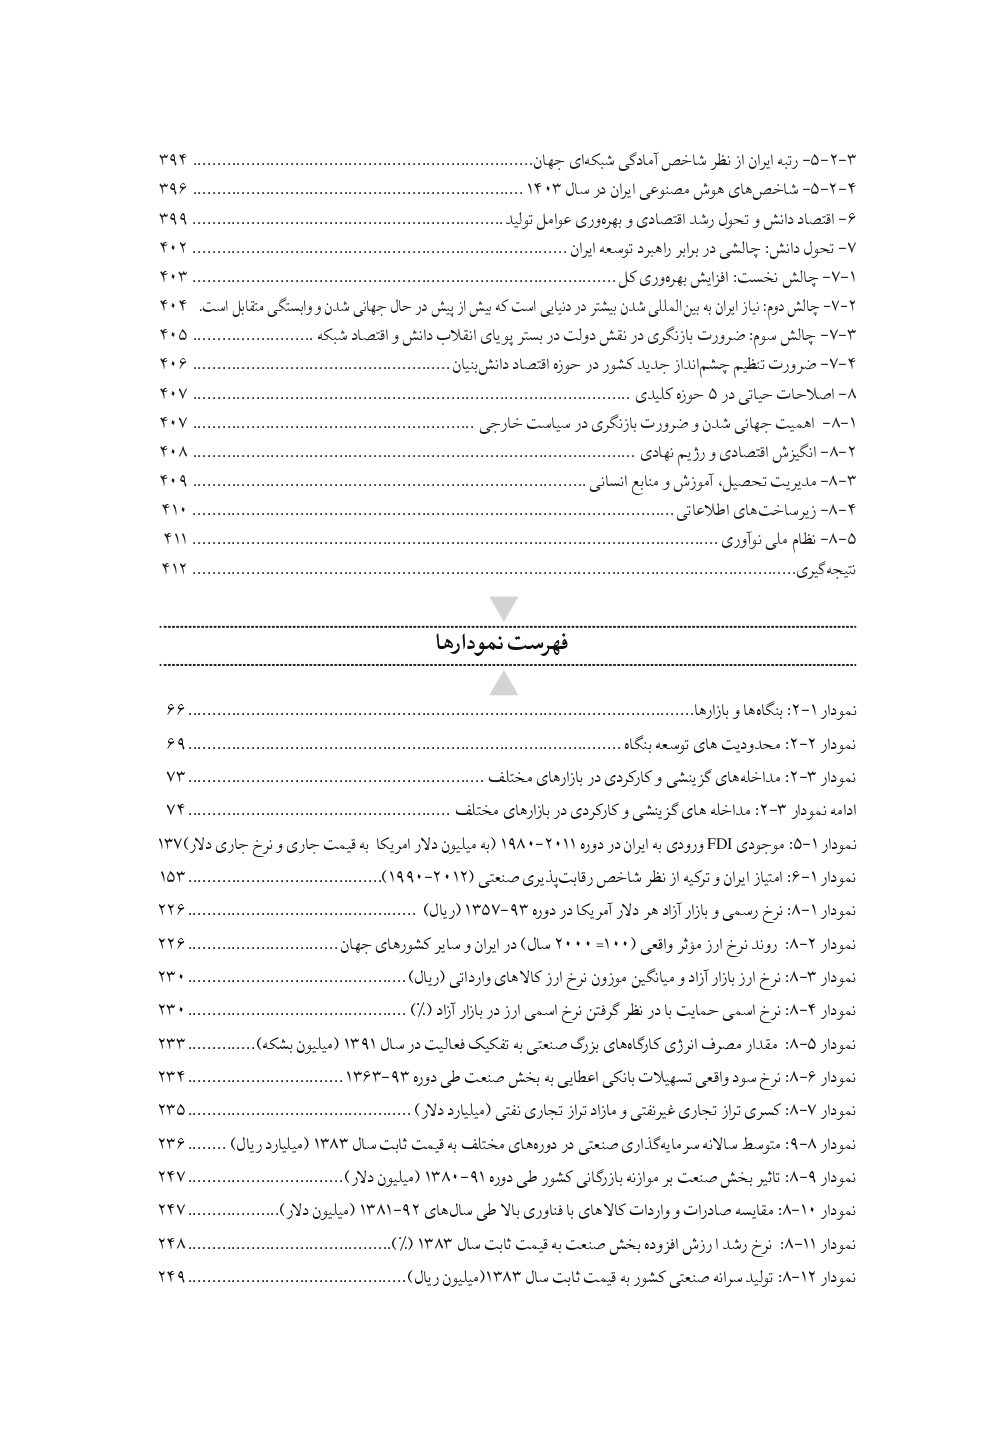 ۵-۲-۳- رتبه ایران از نظر شاخص آمادگی شبکه‌ای جهان ۳۹۴
۵-۲-۴- شاخص‌های هوش مصنوعی ایران در سال ۱۴۰۳ ۳۹۶
۶- اقتصاد دانش و تحول رشد اقتصادی و بهره‌وری عوامل تولید ۳۹۹
۷- تحول دانش: چالشی در برابر راهبرد توسعه ایران ۴۰۲
۷-۱- چالش نخست: افزایش بهره‌وری کل ۴۰۳
۷-۲- چالش دوم: نیاز ایران به بین‌المللی شدن بیشتر در دنیایی است که بیش از پیش در حال جهانی شدن و وابستگی متقابل است. ۴۰۴
۷-۳- چالش سوم: ضرورت بازنگری در نقش دولت در بستر پویای انقلاب دانش و اقتصاد شبکه ۴۰۵
۷-۴- ضرورت تنظیم چشم‌انداز جدید کشور در حوزه اقتصاد دانش‌بنیان ۴۰۶
۸- اصلاحات حیاتی در ۵ حوزه کلیدی ۴۰۷
۸-۱- اهمیت جهانی شدن و ضرورت بازنگری در سیاست خارجی ۴۰۷
۸-۲- انگیزش اقتصادی و رژیم نهادی ۴۰۸
۸-۳- مدیریت تحصیل، آموزش و منابع انسانی ۴۰۹
۸-۴- زیرساخت‌های اطلاعاتی ۴۱۰
۸-۵- نظام ملی نوآوری ۴۱۱
نتیجه‌گیری ۴۱۲
فهرست نمودارها
نمودار ۱-۲: بنگاه‌ها و بازارها ۶۶
نمودار ۲-۲: محدودیت های توسعه بنگاه ۶۹
نمودار ۳-۲: مداخله‌های گزینشی و کارکردی در بازارهای مختلف ۷۳
ادامه نمودار ۳-۲: مداخله های گزینشی و کارکردی در بازارهای مختلف ۷۴
نمودار ۱-۵: موجودی FDI ورودی به ایران در دوره ۲۰۱۱-۱۹۸۰ (به میلیون دلار امریکا به قیمت جاری و نرخ جاری دلار) ۱۳۷
نمودار ۱-۶: امتیاز ایران و ترکیه از نظر شاخص رقابت‌پذیری صنعتی (۲۰۱۲-۱۹۹۰) ۱۵۳
نمودار ۱-۸: نرخ رسمی و بازار آزاد هر دلار آمریکا در دوره ۹۳-۱۳۵۷ (ریال) ۲۲۶
نمودار ۲-۸: روند نرخ ارز مؤثر واقعی (۱۰۰= ۲۰۰۰ سال) در ایران و سایر کشورهای جهان ۲۲۶
نمودار ۳-۸: نرخ ارز بازار آزاد و میانگین موزون نرخ ارز کالاهای وارداتی (ریال) ۲۳۰
نمودار ۴-۸: نرخ اسمی حمایت با در نظر گرفتن نرخ اسمی ارز در بازار آزاد (٪) ۲۳۰
نمودار ۵-۸: مقدار مصرف انرژی کارگاه‌های بزرگ صنعتی به تفکیک فعالیت در سال ۱۳۹۱ (میلیون بشکه) ۲۳۳
نمودار ۶-۸: نرخ سود واقعی تسهیلات بانکی اعطایی به بخش صنعت طی دوره ۹۳-۱۳۶۳ ۲۳۴
نمودار ۷-۸: کسری تراز تجاری غیرنفتی و مازاد تراز تجاری نفتی (میلیارد دلار) ۲۳۵
نمودار ۸-۹: متوسط سالانه سرمایه‌گذاری صنعتی در دوره‌های مختلف به قیمت ثابت سال ۱۳۸۳ (میلیارد ریال) ۲۳۶
نمودار ۹-۸: تاثیر بخش صنعت بر موازنه بازرگانی کشور طی دوره ۹۱-۱۳۸۰ (میلیون دلار) ۲۴۷
نمودار ۱۰-۸: مقایسه صادرات و واردات کالاهای با فناوری بالا طی سال‌های ۹۲-۱۳۸۱ (میلیون دلار) ۲۴۷
نمودار ۱۱-۸: نرخ رشد ارزش افزوده بخش صنعت به قیمت ثابت سال ۱۳۸۳ (٪) ۲۴۸
نمودار ۱۲-۸: تولید سرانه صنعتی کشور به قیمت ثابت سال ۱۳۸۳(میلیون ریال) ۲۴۹